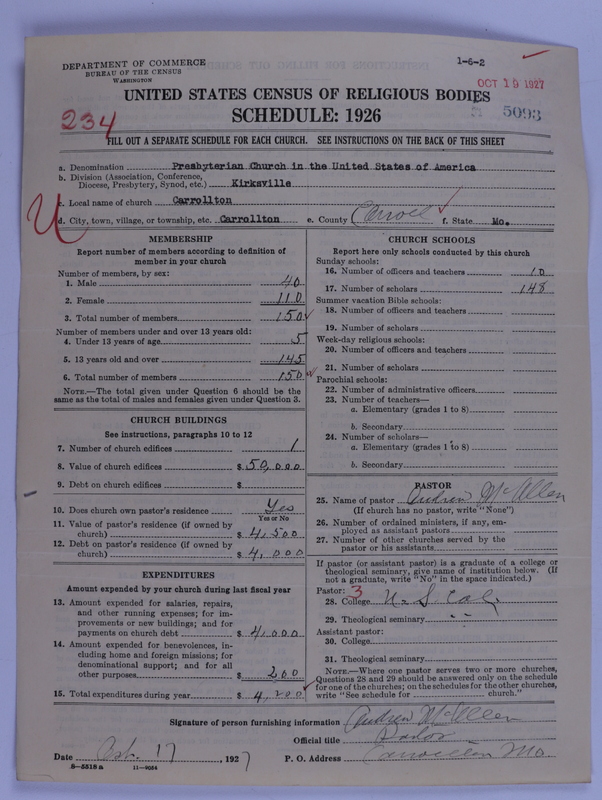 DEPARTMENT OF COMMERCE
BUREAU OF THE CENSUS
WASHINGTON
1-6-2
OCT 19 1927
UNITED STATES CENSUS OF RELIGIOUS BODIES
5093
SCHEDULE: 1926
234
FILL OUT A SEPARATE SCHEDULE FOR EACH CHURCH. SEE INSTRUCTIONS ON THE BACK OF THIS SHEET
a. Denomination Presbyterian Church in the United States of America
b. Division (Association, Conference, Diocese, Presbytery, Synod, etc.) Kirksville
c. Local name of church Carrollton
U
d. City, town, village, or township, etc. Carrollton e. County Carroll f. State Mo.
MEMBERSHIP
Report number of members according to definition of
member in your church
Number of members, by sex:
1. Male 40
2. Female 110
3. Total number of members 150
Number of members under and over 13 years old:
4. Under 13 years of age 5
5. 13 years old and over 145
6. Total number of members 150
NOTE.—The total given under Question 6 should be the
same as the total of males and females given under Question 3.
CHURCH BUILDINGS
See instructions, paragraphs 10 to 12
7. Number of church edifices 1
8. Value of church edifices $ 50,000
9. Debt on church edifices $
10. Does church own pastor's residence? Yes
Yes or No
11. Value of pastor's residence (if owned by
church) $ 4,500
12. Debt on pastor's residence (if owned by
church) $ 4,000
EXPENDITURES
Amount expended by your church during last fiscal year
13. Amount expended for salaries, repairs,
and other running expenses; for im-
provements or new buildings; and for
payments on church debt $ 4,000
14. Amount expended for benevolences, in-
cluding home and foreign missions; for
denominational support; and for all
other purposes $ 200
15. Total expenditures during year $ 4,200
CHURCH SCHOOLS
Report here only schools conducted by this church
Sunday schools:
16. Number of officers and teachers 10
17. Number of scholars 148
Summer vacation Bible schools:
18. Number of officers and teachers
19. Number of scholars
Week-day religious schools:
20. Number of officers and teachers
21. Number of scholars
Parochial schools:
22. Number of administrative officers
23. Number of teachers—
a. Elementary (grades 1 to 8)
b. Secondary
24. Number of scholars—
a. Elementary (grades 1 to 8)
b. Secondary
PASTOR
25. Name of pastor Andrew McAllen
(If church has no pastor, write "None")
26. Number of ordained ministers, if any, em-
ployed as assistant pastors
27. Number of other churches served by the
pastor or his assistants
If pastor (or assistant pastor) is a graduate of a college or
theological seminary, give name of institution below. (If
not a graduate, write "No" in the space indicated.)
Pastor: 3
28. College U. S. Col.
29. Theological seminary " "
Assistant pastor:
30. College
31. Theological seminary
NOTE.—Where one pastor serves two or more churches,
Questions 28 and 29 should be answered only on the schedule
for one of the churches; on the schedules for the other churches,
write "See schedule for church."
Signature of person furnishing information Andrew McAllen
Official title Pastor
Date Oct. 17, 1927 P. O. Address Carrollton Mo.
8-5518a 11-9054